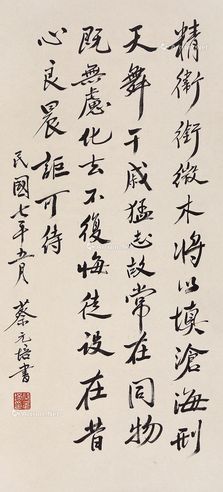 精衛銜微木將以填滄海刑
天舞干戚猛志故常在同物
既無慮化去不復悔徒設在昔
心良晨詎可待
民國七年五月
蔡元培書